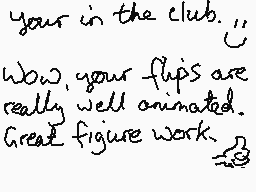 your in the club. :)
Wow, your flips are
really well animated.
Great figure work.